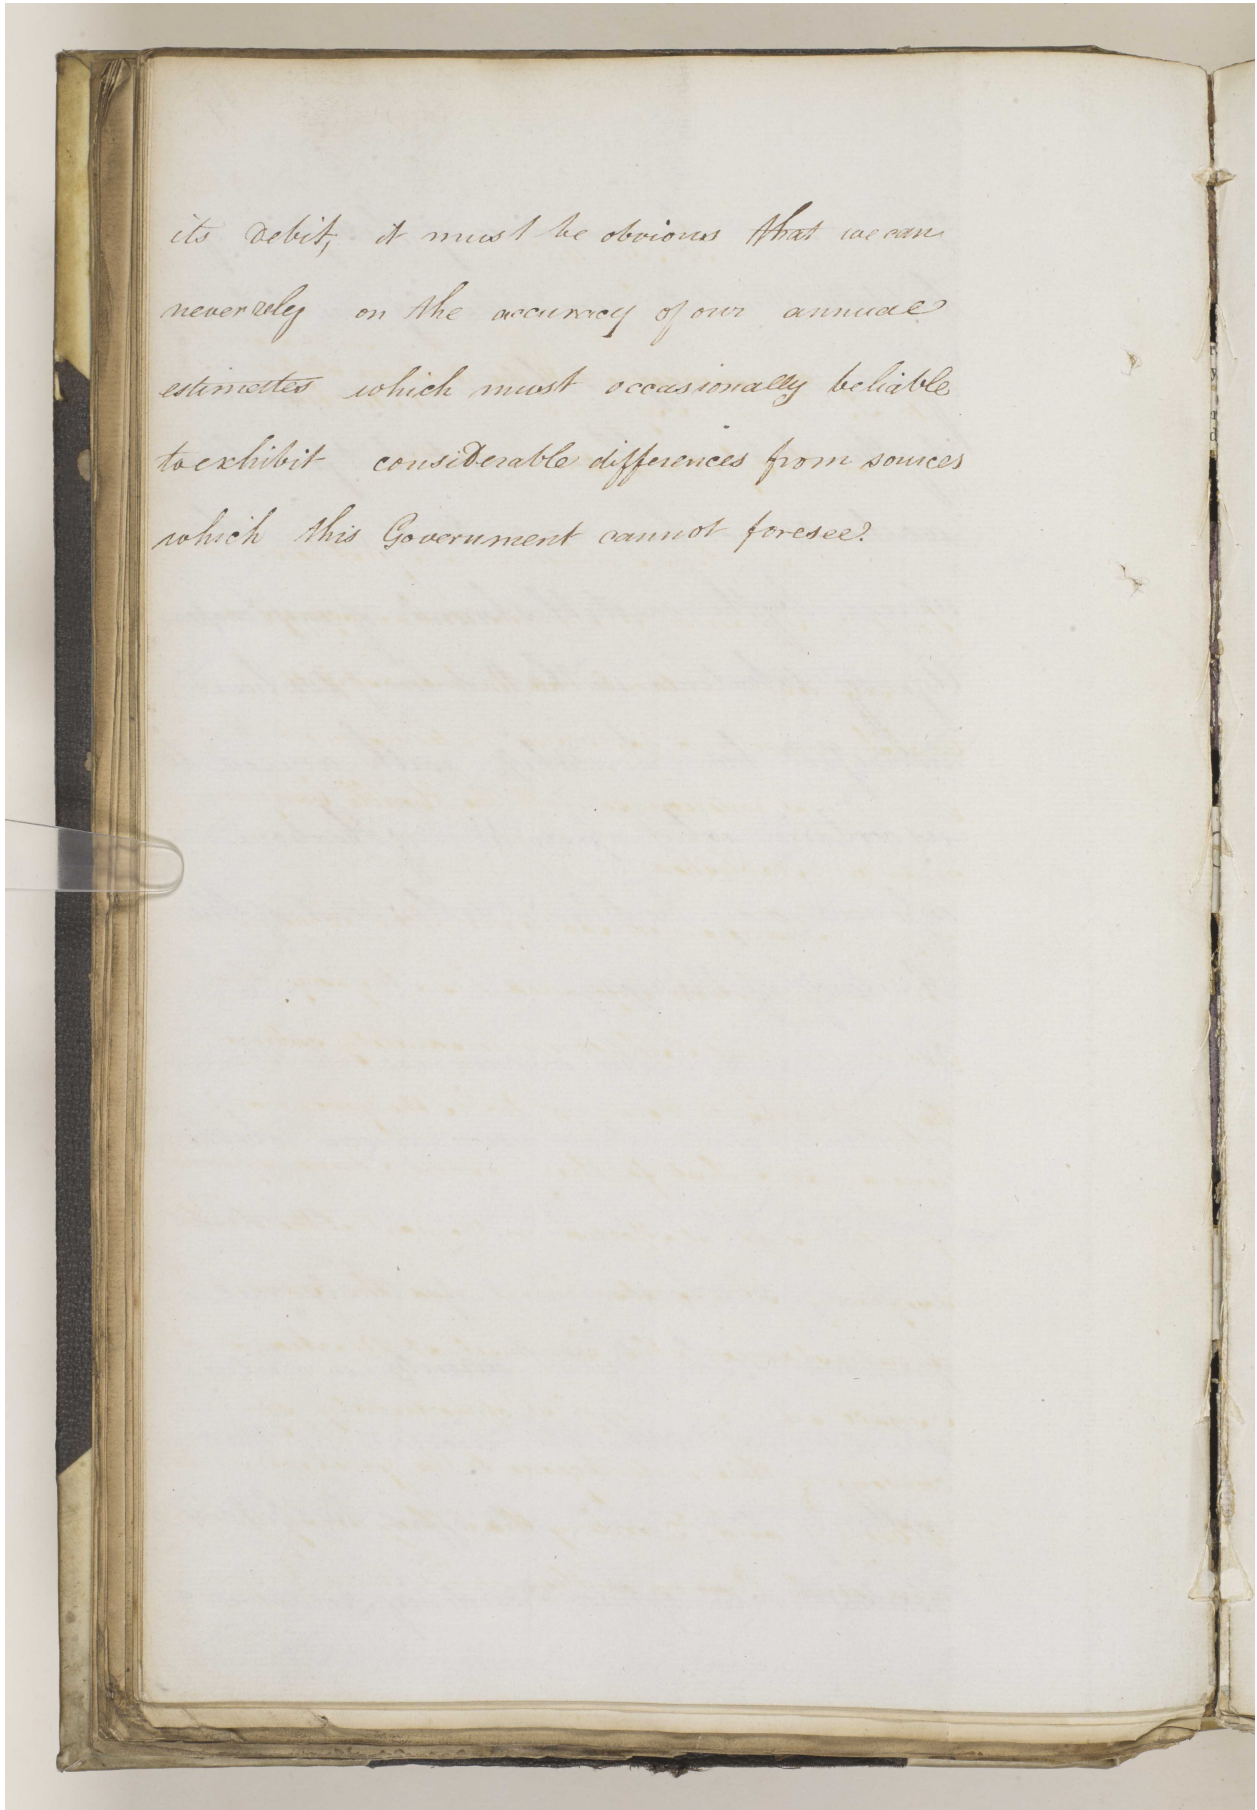 its debit, it must be obvious that we can
never rely on the accuracy of our annual
estimates which must occasionally be liable
to exhibit considerable differences from sources
which this Government cannot foresee.